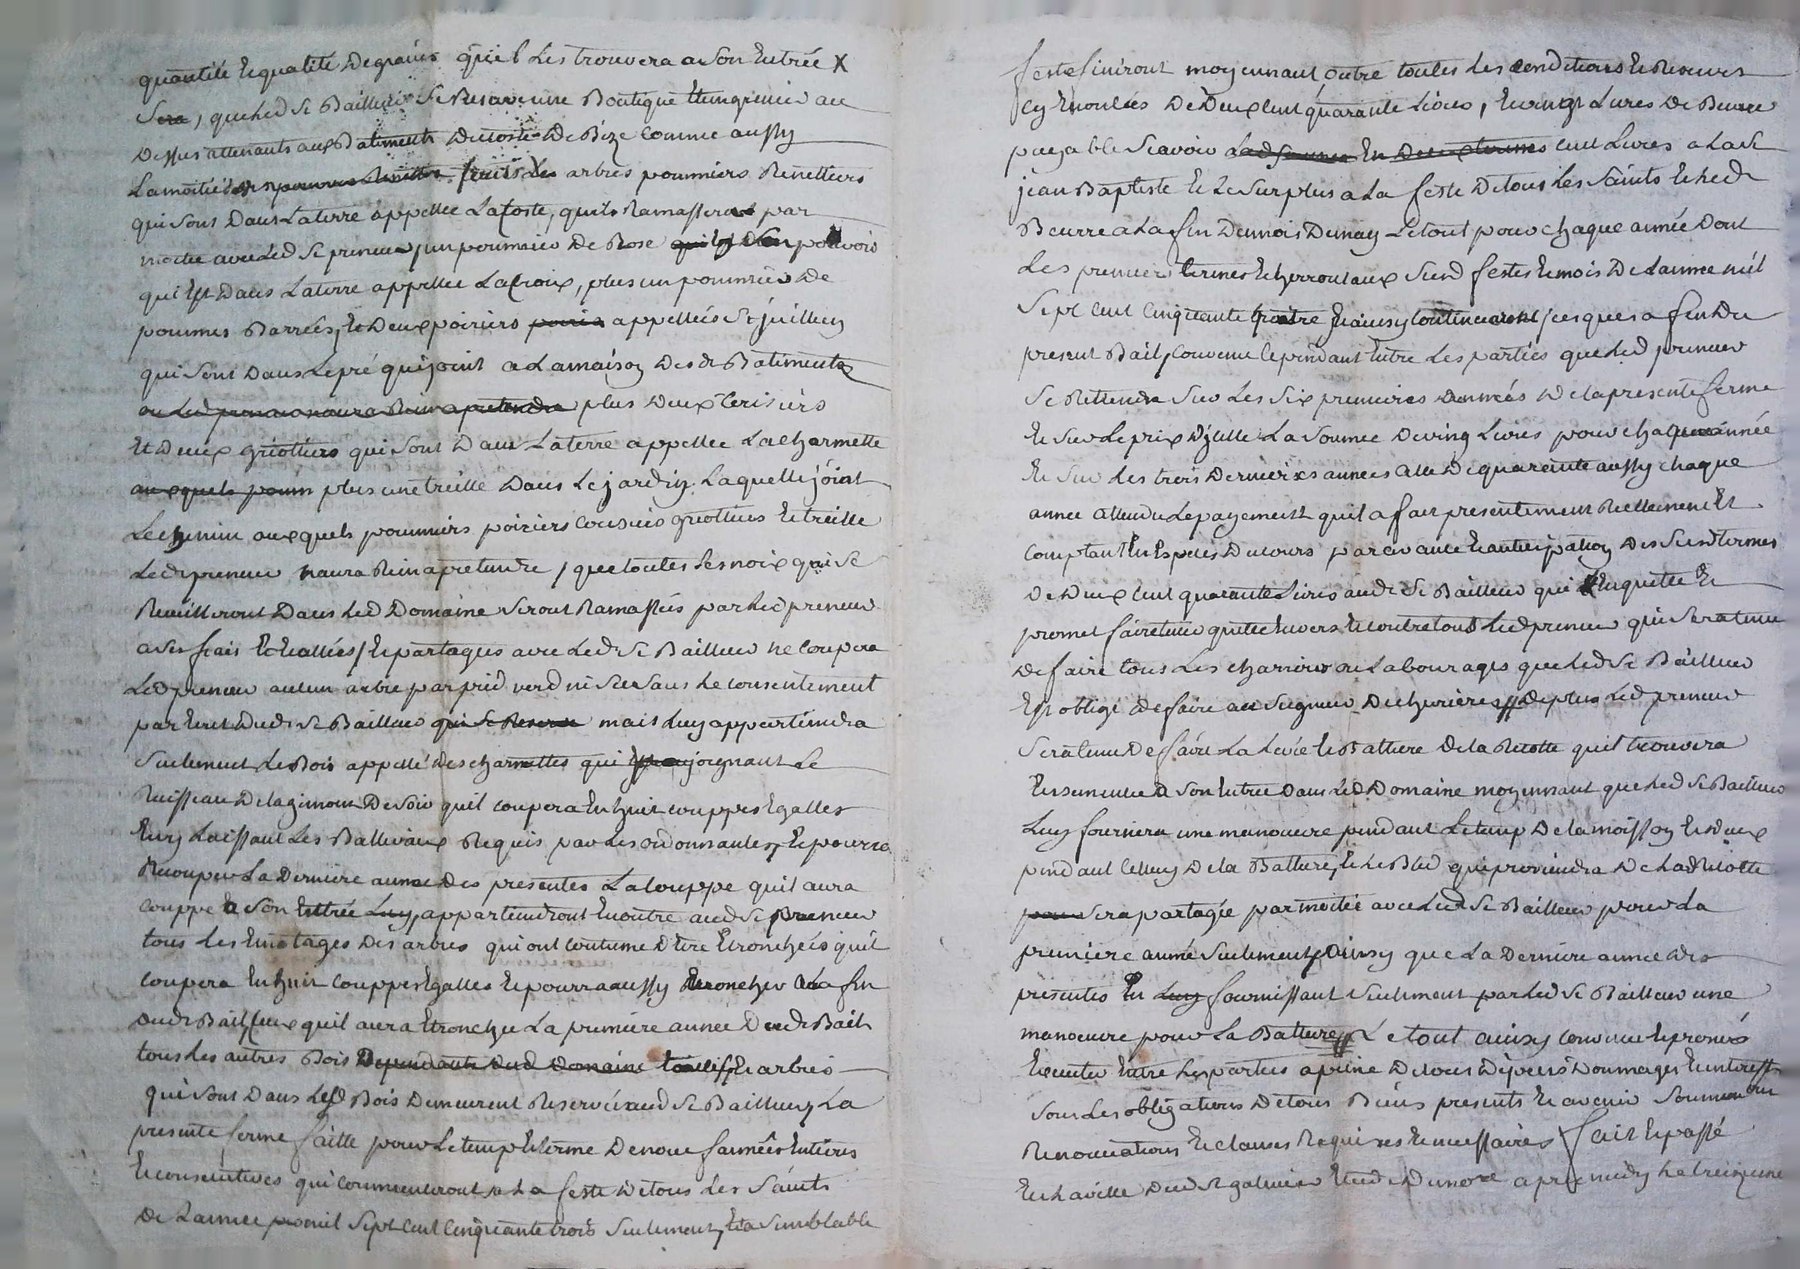 quantité et qualité de grains qu'il les trouvera a son Entrée X
Sera, que led Sr Bailleur Se Reserve une Boutique et un grenier au
dessus attenants aux Batiments du costé de Bize comme aussy
La moitié des fruits des arbres pommiers Renettiers
qui sont dans La terre appellée La Coste, quils Ramasseront par
moitié avec led Sr preneur, un pommier de Rose
qui Est dans La terre appellée La Croix, plus un pommier de
pommes Barrées, et deux poiriers appellés St juillien
qui sont dans Le pré qui joint a La maison desd Batiments
ou Led preneur n'aura Rien a pretendre plus deux Cerisiers
Et deux griottiers qui sont dans La terre appellée La charmette
plus une treille dans Le jardin Laquelle joint
Le chemin auxquels pommiers poiriers cerisiers griottiers et treille
Led preneur n'aura Rien a pretendre, que toutes les noix qui se
Reuilliront dans Led Domaine seront Ramassées par Led preneur
a ses frais et partagées avec Led Sr Bailleur ne coupera
Led preneur aucun arbre par pied verd ni sec sans Le consentement
par Ecrit dud Sr Bailleur qui se Reserve mais Luy appartiendra
seulement Le Bois appellé des charmettes qui joignant Le
Ruisseau de la gimond de soir quil coupera En huit couppes Egalles
En y Laissant Les Balliveaux Requis par Les ordonnances, et pourra
Recouper La derniere année des presentes La couppe quil aura
couppé a son Entrée Luy appartiendront En outre aud Sr preneur
tous Les Emotages des arbres qui ont coutume d'être Etronchées quil
coupera En huit couppes Egalles et pourra aussy Etroncher a La fin
dud Bail, ceux quil aura Etronché La premiere année dud Bail
tous Les autres Bois Dependants dud domaine taillif et arbres
qui sont dans Led Bois demeurent Reservés aud Sr Bailleur, La
presente ferme faitte pour Le temp et terme de neuf années Entieres
et consecutives qui commenceront a La feste de tous Les Saints
de L'année mil sept cent cinquante trois seulement, et a semblable
feste finiront moyennant outre toutes Les conditions et Reserves
cy Enoncées de deux cent quarante Livres, et vingt Livres de Beurre
payable scavoir Lad somme En deux termes cent Livres a La St
jean Baptiste et Le surplus a La feste de tous Les Saints et Led
Beurre a La fin du mois de may Le tout pour chaque année dont
Les premiers termes Echerront aux susd festes et mois de L'année mil
sept cent cinquante quatre et ainsy continueront jusques a fin du
present Bail, Convenu cependant Entre Les parties que Led preneur
se Rettiendra sur Les six premieres années de la presente ferme
et sur Le prix d'icelle La somme de vingt Livres pour chaque année
et sur Les trois dernieres années celle de quarante aussy chaque
année attendu Le payement quil a fait presentement Reellement et
comptant En Especes du cours par avance et anticipation des susd termes
de deux cent quarante Livres aud Sr Bailleur qui L'En quitte et
promet faire tenir quitte Envers et contre tous Led preneur qui sera tenu
de faire tous Les charrois ou Labourages que Led Sr Bailleur
Est obligé de faire au seigneur de chevrieres // de plus Led preneur
sera tenu de faire La Levée et Batture de la Recolte quil trouvera
Ensemencée a son Entrée dans Led Domaine moyennant que Led Sr Bailleur
Luy fournira une manoeuvre pendant Le temp de la moisson et deux
pendant Celluy de la Batture, et Le Bled qui proviendra de Lad Recolte
sera partagée par moitié avec Led Sr Bailleur pour La
premiere année seulement, ainsy que La derniere année des
presentes En Luy fournissant seulement par Led Sr Bailleur une
manoeuvre pour La Batture // Le tout ainsy convenu et promis
Executer Entre Les parties a peine de tous depens dommages et interest
sous Les obligations de tous Biens presents et avenir soumissions
Renonciations et clauses Requises et necessaires fait et passé
En La ville dud St galmier Etude du no.re apres midy Le treizieme